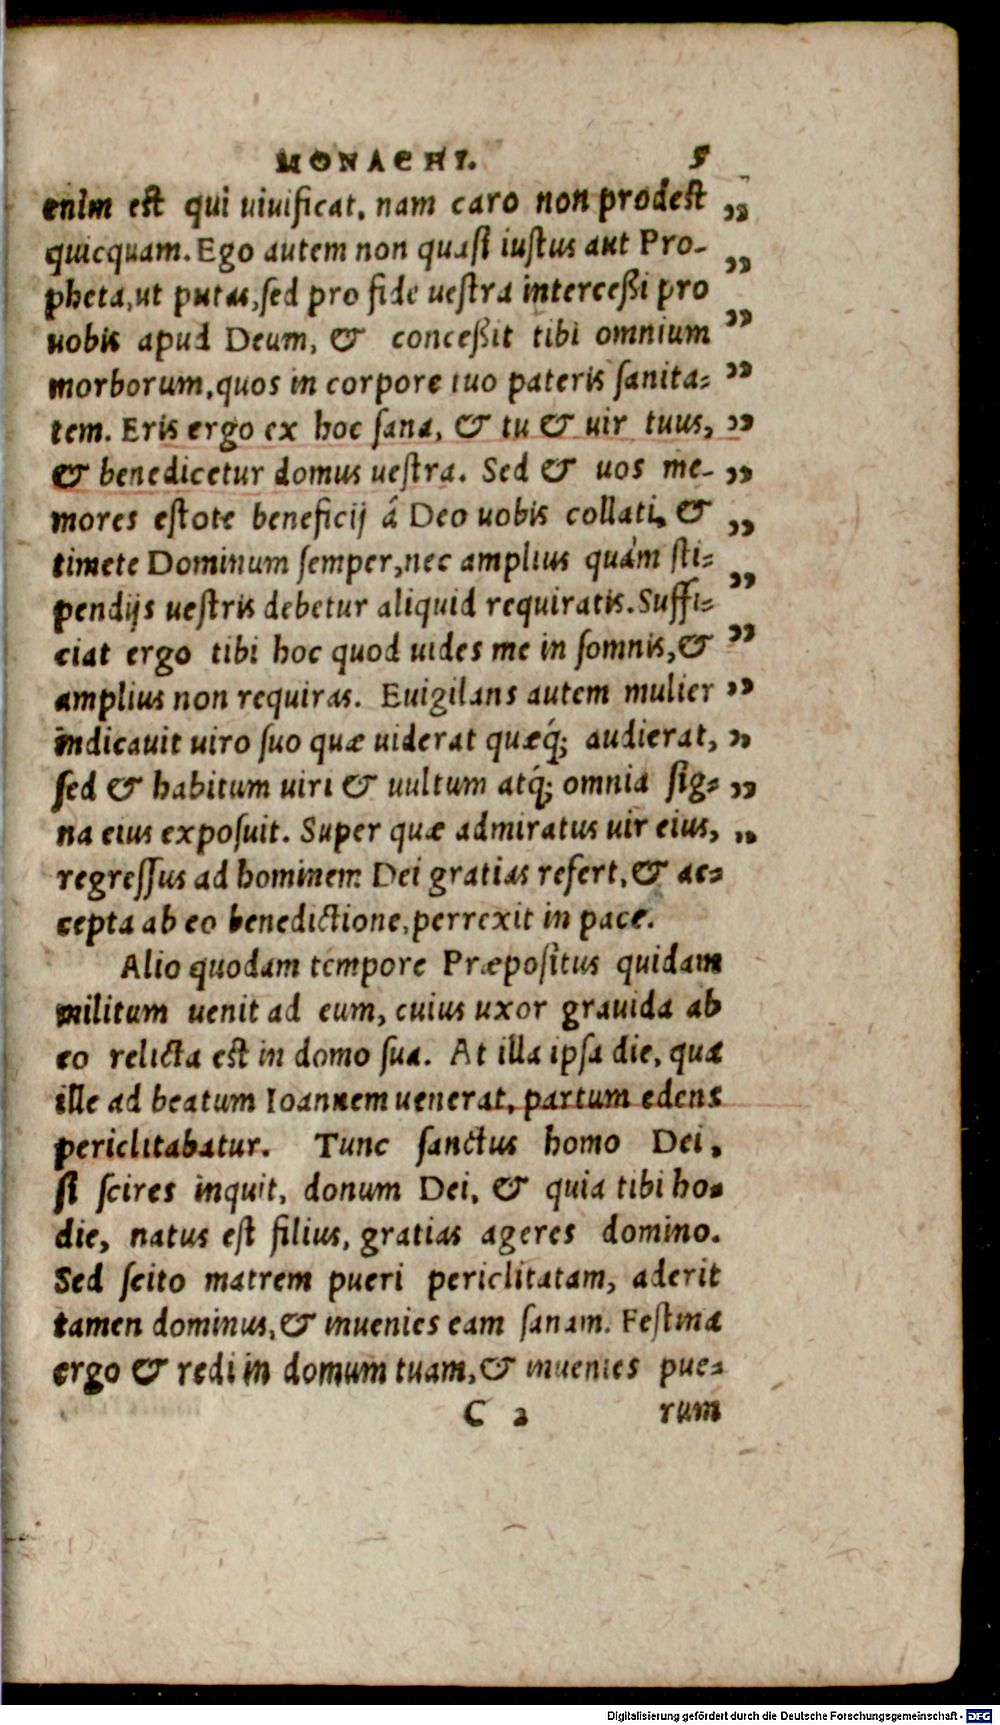 MONACHI. 5
enim est qui uiuificat, nam caro non prodest „
quicquam. Ego autem non quasi iustus aut Pro- „
pheta, ut putas, sed pro fide uestra interceßi pro „
uobis apud Deum, & conceßit tibi omnium
morborum, quos in corpore tuo pateris sanita= „
tem. Eris ergo ex hoc sana, & tu & uir tuus, „
& benedicetur domus uestra. Sed & uos me- „
mores estote beneficij á Deo uobis collati, & „
timete Dominum semper, nec amplius quàm sti= „
pendijs uestris debetur aliquid requiratis. Suffi=
ciat ergo tibi hoc quod uides me in somnis, & „
amplius non requiras. Euigilans autem mulier „
indicauit uiro suo quæ uiderat quæq́; audierat, „
sed & habitum uiri & uultum atq́; omnia sig= „
na eius exposuit. Super quæ admiratus uir eius, „
regressus ad hominem Dei gratias refert, & ac=
cepta ab eo benedictione, perrexit in pace.
Alio quodam tempore Præpositus quidam
militum uenit ad eum, cuius uxor grauida ab
eo relicta est in domo sua. At illa ipsa die, qua
ille ad beatum Ioannem uenerat, partum edens
periclitabatur. Tunc sanctus homo Dei,
si scires inquit, donum Dei, & quia tibi ho=
die, natus est filius, gratias ageres domino.
Sed scito matrem pueri periclitatam, aderit
tamen dominus, & inuenies eam sanam. Festina
ergo & redi in domum tuam, & inuenies pue=
C 2 rum
Digitalisierung gefördert durch die Deutsche Forschungsgemeinschaft - DFG